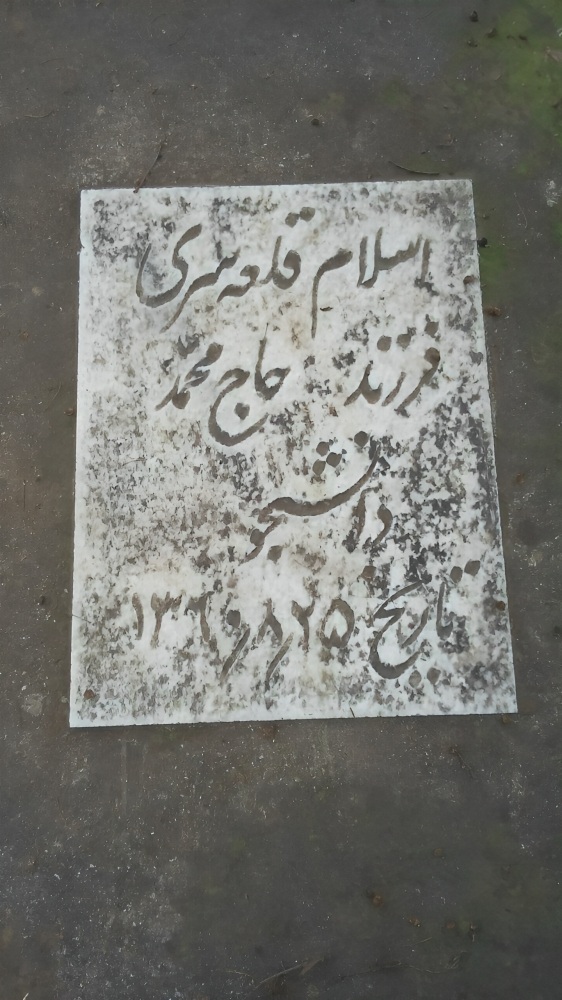 اسلام قلعه سری
فرزند حاج محمّد
دانشجو
تاریخ ۲۵/۸/۱۳۶